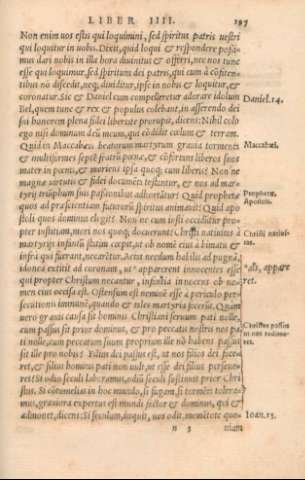 LIBER IIII. 197
Non enim uos estis qui loquimini, sed spiritus patris uestri
qui loquitur in uobis. Dixit, quid loqui & respondere possi-
mus dari nobis in illa hora diuinitus & offerri, nec nos tunc
esse qui loquimur, sed spiritum dei patris, qui cum à cōfiten-
tibus nō discedit, neq; diuiditur, ipse in nobis & loquitur, &
coronatur. Sic & Daniel cum compelleretur adorare idolum
Bel, quem tunc & rex & populus colebant, in asserendo dei
sui honorem plena fidei libertate prorupit, dicens: Nihil colo
ego nisi dominum deū meum, qui cōdidit cœlum & terram.
Quid in Maccabæis beatorum martyrum grauia tormenta
& multiformes septē fratrū pœnæ, & cōfortans liberos suos
mater in pœnis, & moriens ipsa quoq; cum liberis? Non ne
magnæ uirtutis & fidei documenta testantur, & nos ad mar-
tyrij triūphum suis passionibus adhortātur? Quid prophetæ
quos ad præscientiam futurorū spiritus animauit? Quid apo
stoli quos dominus elegit? Non ne cum iusti occiduntur pro-
pter iustitiam, mori nos quoq; docuerunt? Christi natiuitas à
martyrijs infantiū statim cœpit, ut ob nomē eius à bimatu &
infra qui fuerant, necarētur. Aetas necdum habilis ad pugnā,
idonea extitit ad coronam, ut *apparerent innocentes esse
qui propter Christum necantur, infantia innocens ob no-
men eius occisa est. Ostensum est neminē esse à periculo per-
secutionis immunē, quando & tales martyria fecerūt. Quàm
uero grauis causa sit hominis Christiani seruum pati nolle,
cum passus sit prior dominus, & pro peccatis nostris nos pa
ti nolle, cum peccatum suum proprium ille nō habens passus
sit ille pro nobis? Filius dei passus est, ut nos filios dei face-
ret, & filius hominis pati non uult, ut esse dei filius perseue-
ret? Si odio seculi laboramus, odiū seculi sustinuit prior Chri-
stus. Si cōtumelias in hoc mundo, si fugam, si tormēta tolera-
mus, grauiora expertus est mundi factor & dominus, qui &
admonet, dicens: Si seculum, inquit, uos odit, mementote quo-
n 3 niam
Daniel. 14.
Maccabæi.
Prophetæ.
Apostoli.
Christi natiui-
tas.
*als, appare
ret.
Christus passus
ut nos redime-
ret.
Ioan. 15.